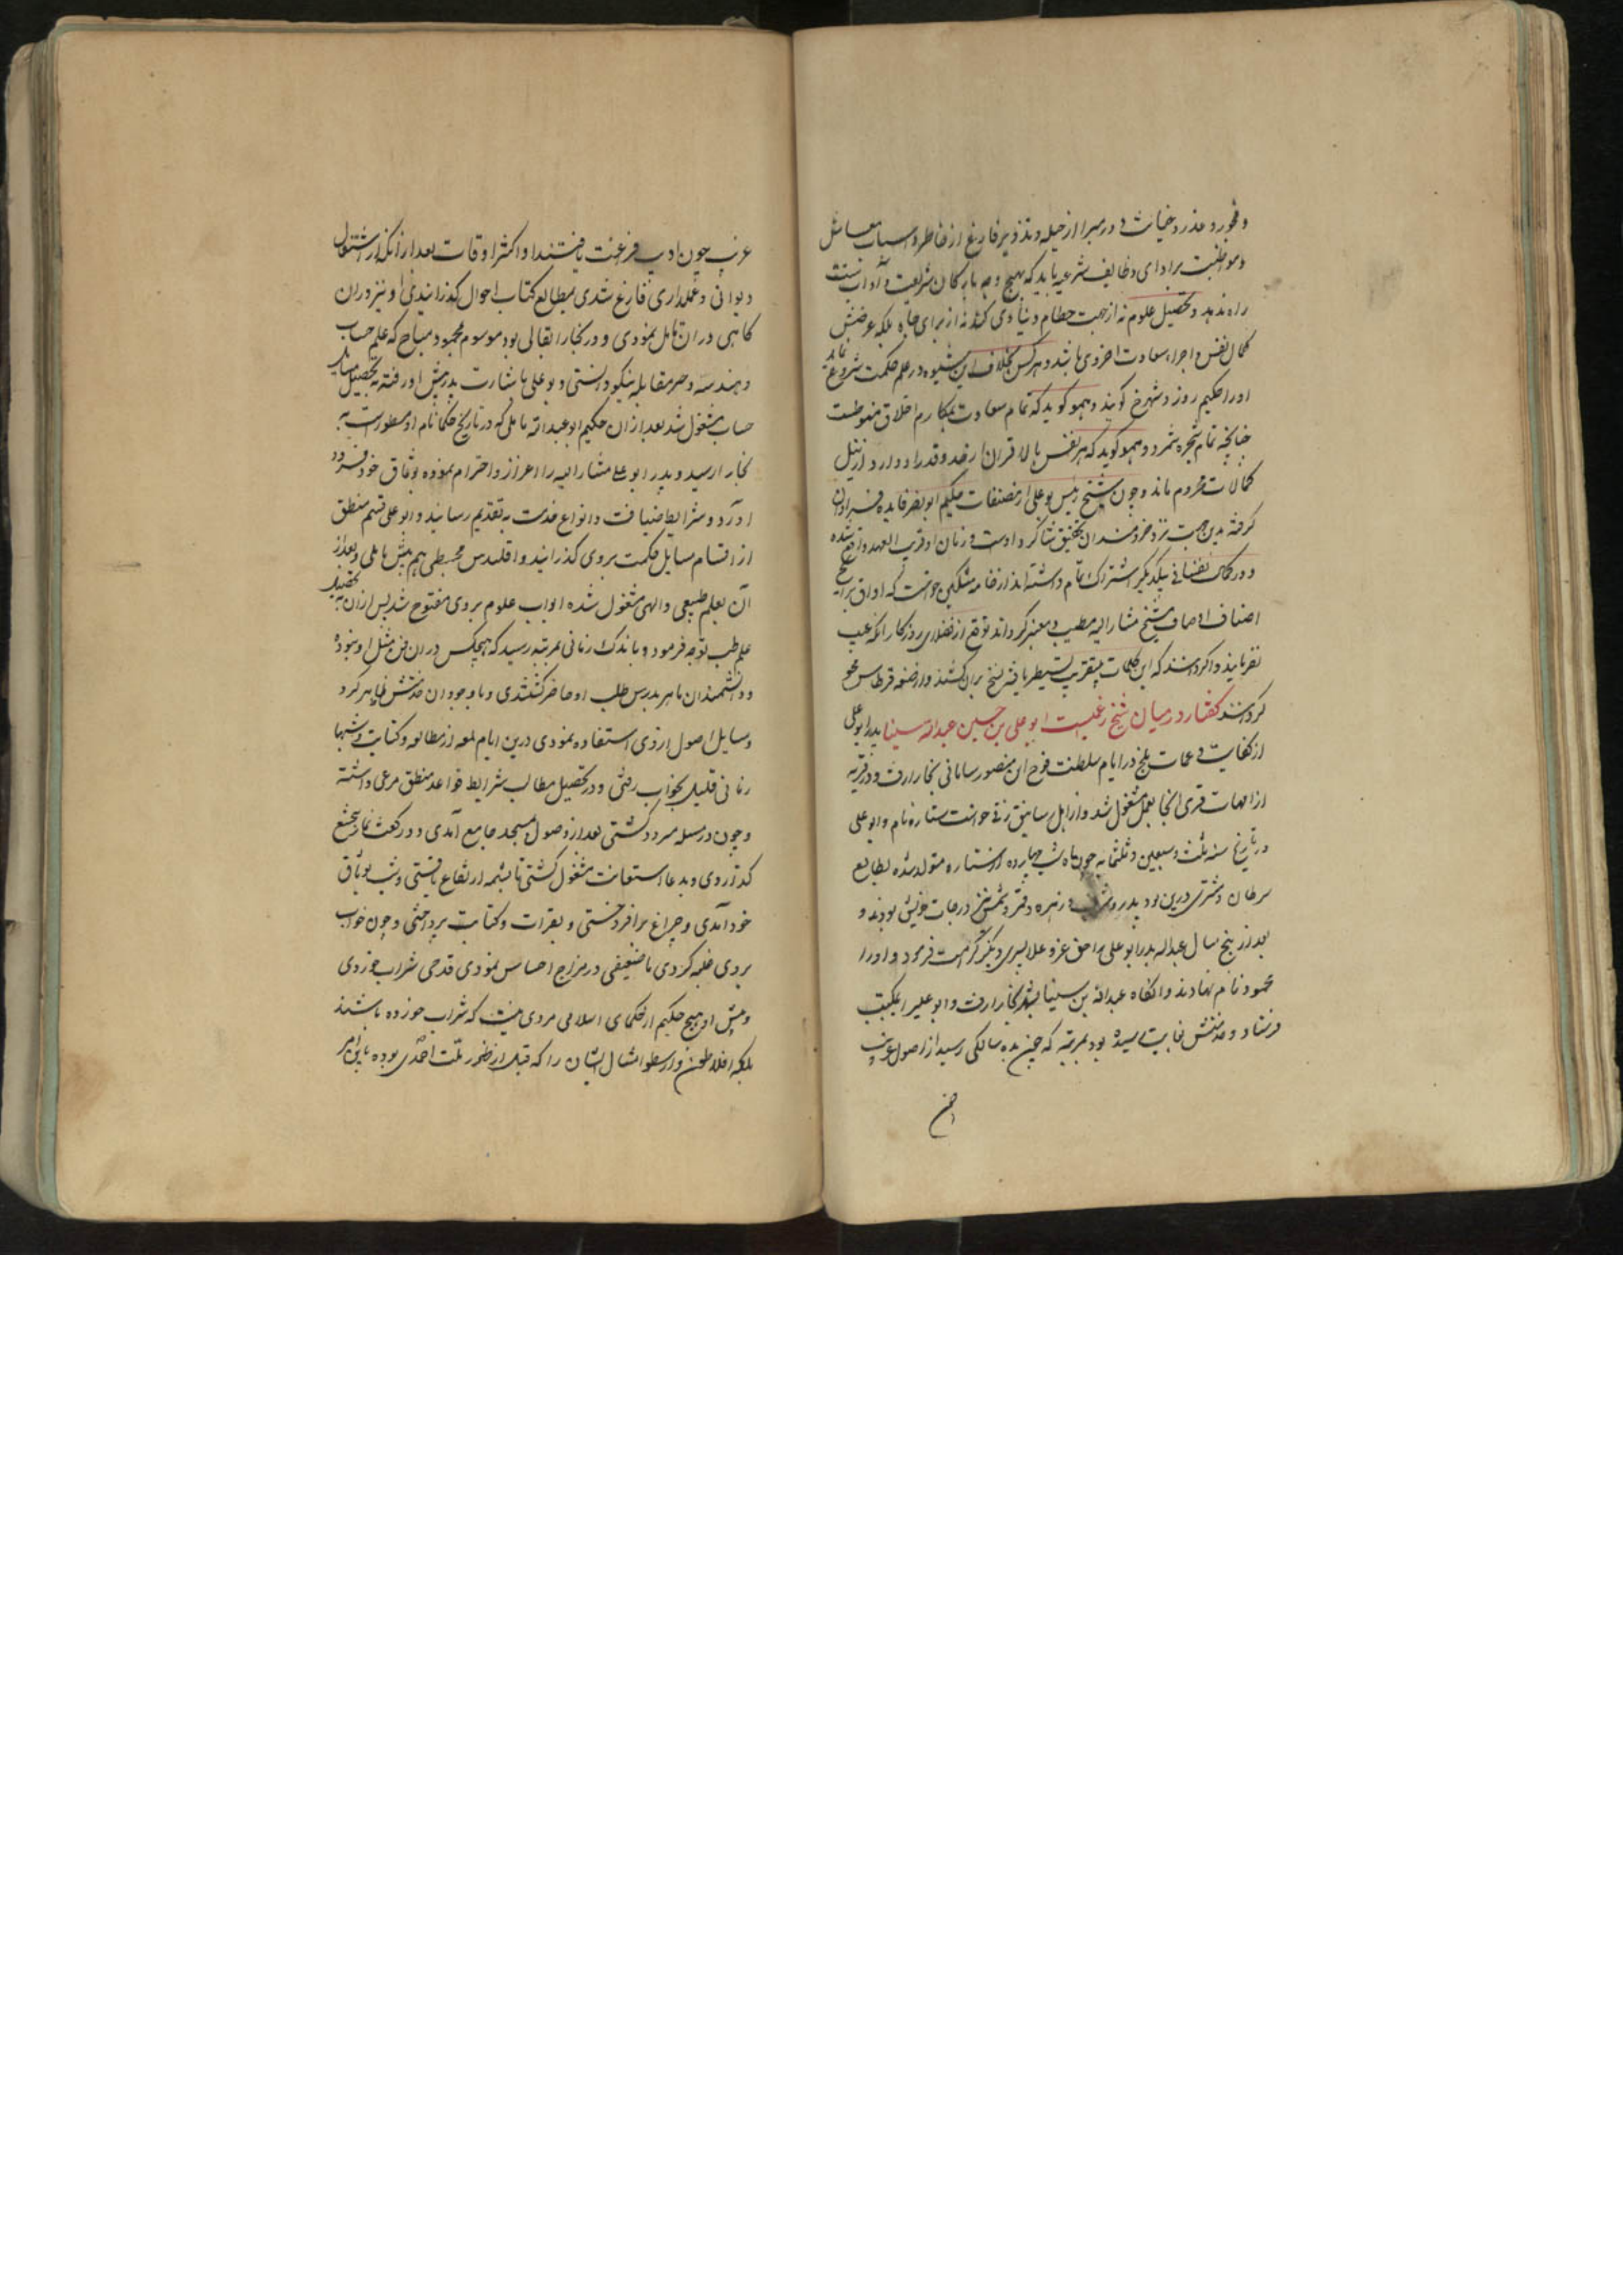 و فجور و غدر و خیانت دور و مبرا از حیله و تزویر فارغ از خاطر و اسباب معاش
و مواظبت بر ادای وظایف شرعیه باید که بهیچ وجه بارکان شریعت و آداب سنت
راه ندهد و تحصیل علوم نه از جهت حطام دنیاوی کند نه از برای جاه بلکه غرضش
کمال نفس و اجراء سعادت اخروی باشد و هر کس بخلاف این شیوه در علم حکمت شروع نماید
او را حکیم روز و شهرخ کویند و همو کوید که تمام سعادت بمکارم اخلاق منوطست
چنانچه تمام شجره بثمر و همو کوید که هر نفس بالا قران ارضد و قدر او دارد از نیل
کمالات محروم ماند و چون شیخ رئیس بوعلی از مصنفات حکیم ابو نصر فایده فراوان
کرفته بدین جهت نزد خردمندان بتحقیق شاکرد اوست و زمان او قریب العهد واقع شده
و در کمالات نفسانی بیکدیکر اشتراک تمام داشته اند از خامه مشکین خواست که اوراق برایح
اصناف اوصاف شیخ مشار الیه مطیب و معنبر کرداند توقع از فضلای روزکار آنکه عیب
نفرمایند و اکر دانند که این کلمات بتقریب تسطیر یافته نسخ بران کشند و از صفحه قرطاس محو
کردانند کفتار در میان شیخ رئیست ابو علی بن حسین عبدالله سینا پدر ابوعلی
از کفایت و عمات بلخ در ایام سلطنت نوح ابن منصور سامانی ببخارا رفت و در قریه
از امهات قری انجا بعمل مشغول شد و از اهل سابق زنی خواست ستاره نام و ابو علی
در تاریخ سنه ثلث و سبعین و ثلثمایه چون ماه شب چهارده از ستاره متولد شده بطالع
سرطان و مشتری درین بود بدر و شرف و زهره و قمر و شمس نیز درجات خویش بودند و
بعد از پنج سال عبدالله پدر ابو علی را حق عز و علا پسری دیکر کرامت فرمود و او را
محمود نام نهادند و انکاه عبدالله بن سینا بشهر بخارا رفت و ابو علی را بمکتب
فرستاد و مدتش نهایت رسیده بود بمرتبه که چون بده سالکی رسید از اصول عربیت
عرب چون ادب فرغت یافتند او اکثر اوقات بعد از انکه از اشتغال
دیوانی و عملداری فارغ شدی بمطالع کتاب احوال کذرانیدی او نیز دران
کاهی دران تامل نمودی و در بخارا بقالی بود موسوم بمحمود مساح که علم حساب
و هندسه و جبر مقابله نیکو دانستی و بوعلی باشارت پدر پیش او رفته بتحصیل مسایل
حساب مشغول شد بعد از ان حکیم ابو عبدالله ناملی که در تاریخ حکما نام او مسطورست به
بخارا رسید و پدر ابو علی مشار الیه را اعزاز و احترام نموده بوثاق خود فرود
اورد و شرایط ضیافت و انواع خدمت بتقدیم رسانید و ابو علی قسم منطق
از اقسام مسایل حکمت بروی کذرانید و اقلیدس مجسطی هم پیش ناملی و بعد از
آن بعلم طبیعی و الهی مشغول شده ابواب علوم بروی مفتوح شد پس از ان بتحصیل
علم طب توجه فرمود و باندک زمانی بمرتبه رسید که هیچکس دران فن مثل او نبوده
و دانشمندان ماهر بدرس طب او حاضر کشتندی و با وجود ان مدتش ظاهر کرد
و مسایل اصول از وی استفاده نمودی درین ایام لمعه از مطالعه و کتابت و شبها
زمانی قلیل بخواب رفتی و در تحصیل مطالب شرایط قواعد منطق مرعی داشته
و چون در مسله مردد کشتی بعد از وصول بمسجد جامع آمدی و دو رکعت نماز بخشع
کذاردی و بدعا استعانت مشغول کشتی تا شبهه ارتفاع یافتی و شب بوثاق
خود آمدی و چراغ برافروختی و بقرات و کتابت پرداختی و چون خواب
بروی غلبه کردی یا ضعیفی در مزاج احساس نمودی قدحی شراب خوردی
و پیش او هیچ حکیم از حکمای اسلامی مروی نیست که شراب خورده باشند
بلکه افلاطون و ارسطو امثال ایشان را که قبل از ظهور ملت احمدی بوده باین امر